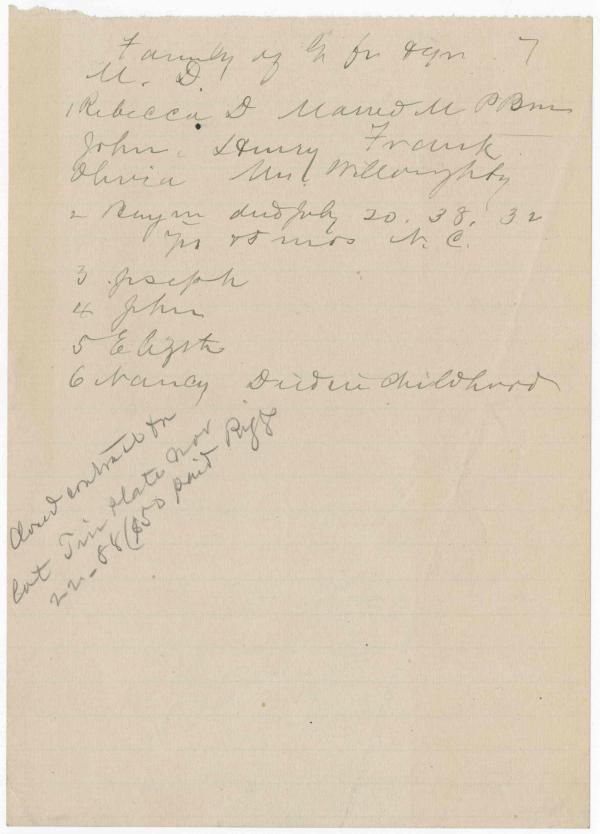 Family of G fr 7
M. D.
1 Rebecca D Marred M P
John, Henry Frank
Olivia Mrs Willoughby
2 died July 20. 38, 32
yrs 8 mos N. C.
3 Joseph
4 John
5 Elizbth
6 Nancy Died in Childhood
closed contract on
lot Tin plate Nov
22 - 88 ($50 paid